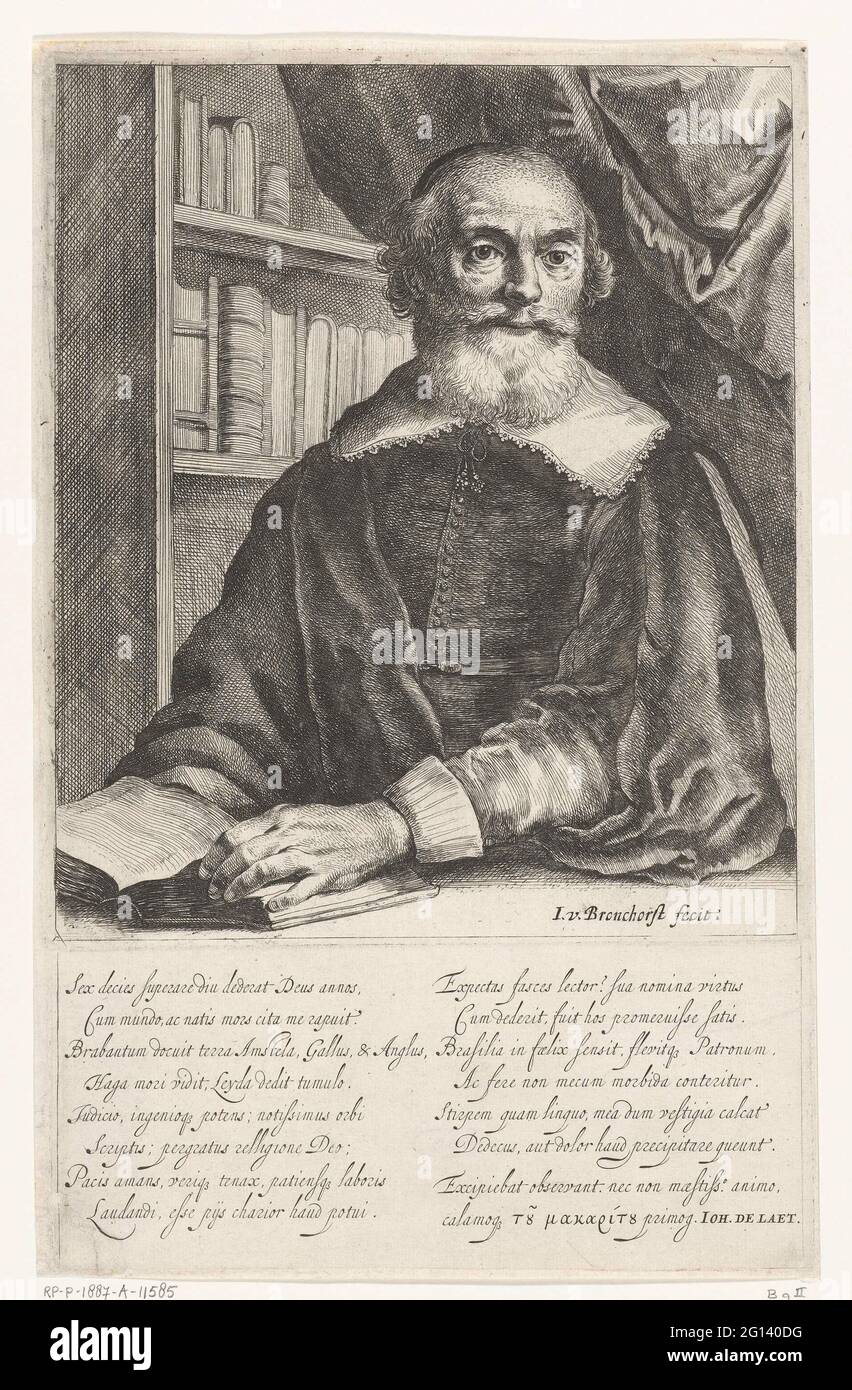 I. v. Bronchorst fecit:
Sex decies superare diu dederat Deus annos,
Cum mundo, ac natis mors cita me rapuit.
Brabantum docuit terra Amstela, Gallus, & Anglus,
Haga mori vidit, Leyda dedit tumulo.
Judicio, ingenioqꝫ potens; notissimus orbi
Scriptis; pergratus relligione Deo;
Pacis amans, veriqꝫ tenax, patiensqꝫ laboris
Laudandi, esse pijs charior haud potui.
Expectas fasces lector? sua nomina virtus
Cum dederit, fuit hos promeruisse satis.
Brasilia in fœlix sensit, flevitqꝫ Patronum,
Ac fere non mecum morbida conteritur.
Stirpem quam linquo, mea dum vestigia calcat
Dedecus, aut dolor haud precipitare queunt.
Excipiebat observant. nec non mæstiss.º animo,
calamoqꝫ τȣ͂ μακαρίτȣ primog. IOH. DE LAET.
RP-P-1887-A-11585
B 9 II
alamy
alamy
Image ID: 2G140DG
www.alamy.com